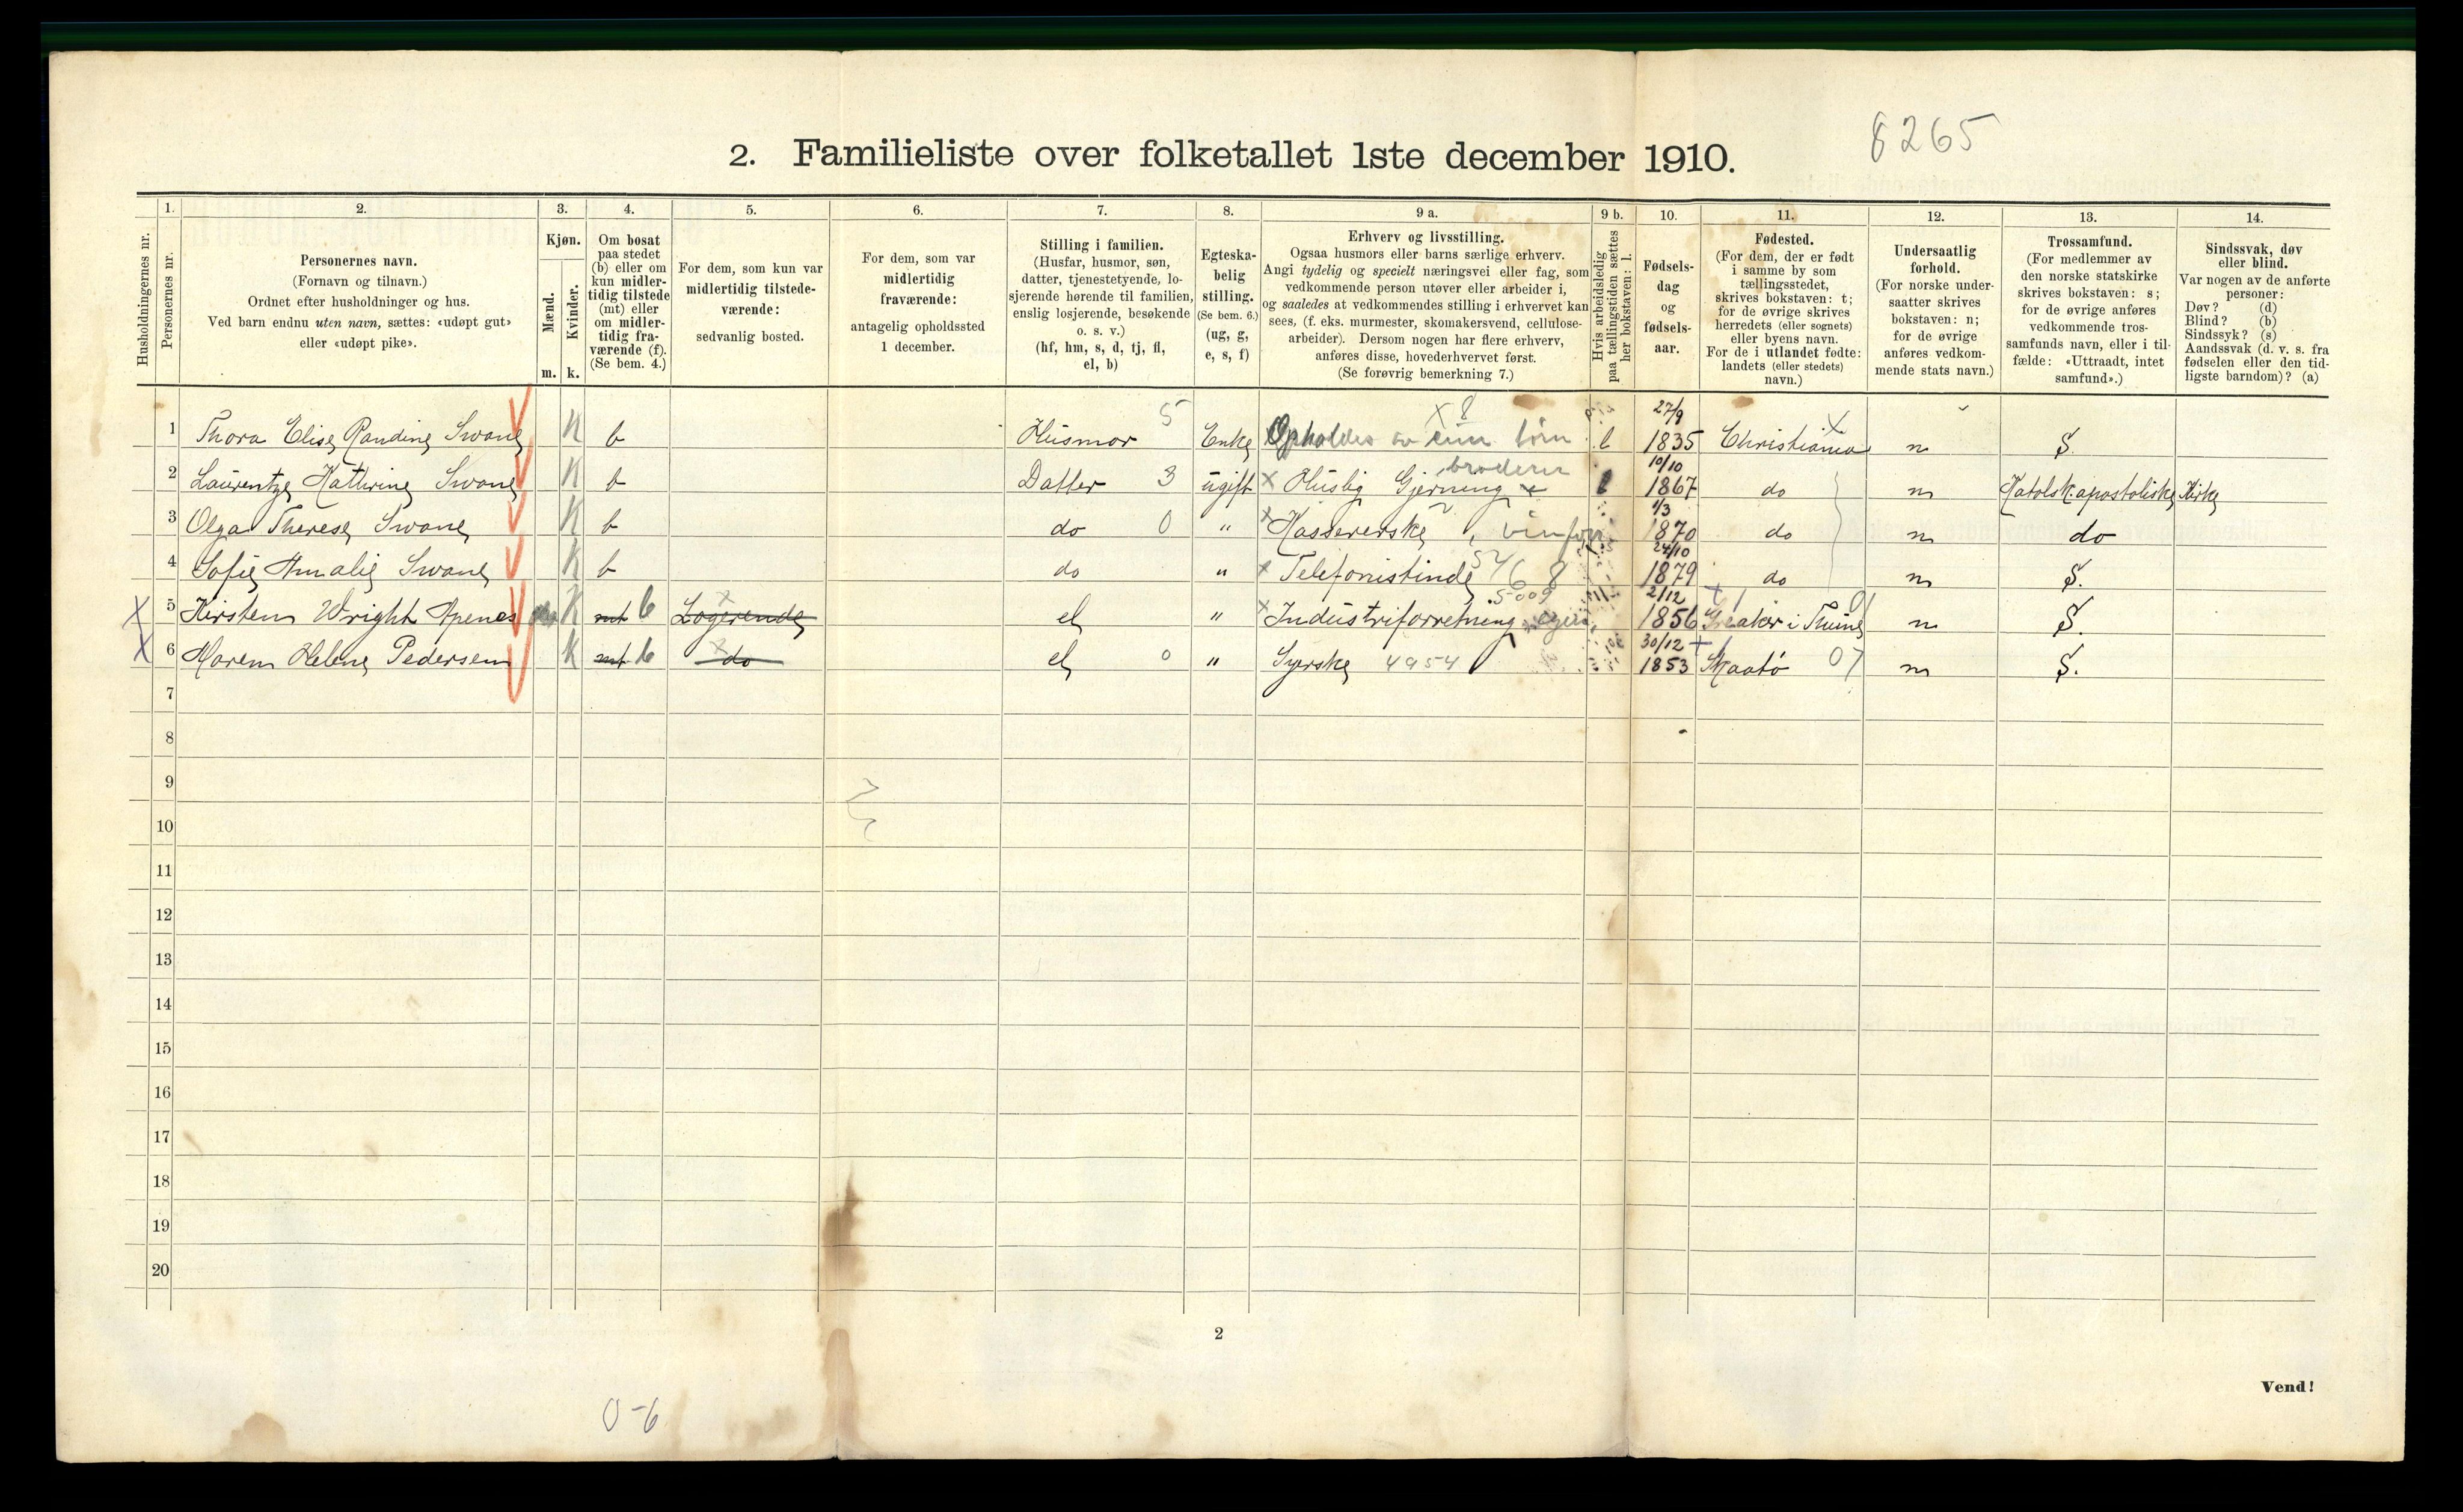 8265
2. Familieliste over folketallet 1ste december 1910.
Husholdningernes nr.
1. Personernes nr.
2. Personernes navn.
(Fornavn og tilnavn.)
Ordnet efter husholdninger og hus.
Ved barn endnu uten navn, sættes: «udøpt gut»
eller «udøpt pike».
3. Kjøn.
Mænd. m.
Kvinder. k.
4. Om bosat
paa stedet
(b) eller om
kun midler-
tidig tilstede
(mt) eller
om midler-
tidig fra-
værende (f).
(Se bem. 4.)
5. For dem, som kun var
midlertidig tilstede-
værende:
sedvanlig bosted.
6. For dem, som var
midlertidig
fraværende:
antagelig opholdssted
1 december.
7. Stilling i familien.
(Husfar, husmor, søn,
datter, tjenestetyende, lo-
sjerende hørende til familien,
enslig losjerende, besøkende
o. s. v.)
(hf, hm, s, d, tj, fl,
el, b)
8. Egteska-
belig
stilling.
(Se bem. 6.)
(ug, g,
e, s, f)
9 a. Erhverv og livsstilling.
Ogsaa husmors eller barns særlige erhverv.
Angi tydelig og specielt næringsvei eller fag, som
vedkommende person utøver eller arbeider i,
og saaledes at vedkommendes stilling i erhvervet kan
sees, (f. eks. murmester, skomakersvend, cellulose-
arbeider). Dersom nogen har flere erhverv,
anføres disse, hovederhvervet først.
(Se forøvrig bemerkning 7.)
9 b. Hvis arbeidsledig
paa tællingstiden sættes
her bokstaven: l.
10. Fødsels-
dag
og
fødsels-
aar.
11. Fødested.
(For dem, der er født
i samme by som
tællingsstedet,
skrives bokstaven: t;
for de øvrige skrives
herredets (eller sognets)
eller byens navn.
For de i utlandet fødte:
landets (eller stedets)
navn.)
12. Undersaatlig
forhold.
(For norske under-
saatter skrives
bokstaven: n;
for de øvrige
anføres vedkom-
mende stats navn.)
13. Trossamfund.
(For medlemmer av
den norske statskirke
skrives bokstaven: s;
for de øvrige anføres
vedkommende tros-
samfunds navn, eller i til-
fælde: «Uttraadt, intet
samfund».)
14. Sindssvak, døv
eller blind.
Var nogen av de anførte
personer:
Døv? (d)
Blind? (b)
Sindssyk? (s)
Aandssvak (d. v. s. fra
fødselen eller den tid-
ligste barndom)? (a)
1 Thora Elise Randine Swane K b Husmor 5 Enke X 8 Opholdes av sine børn l 27/9 1835 Christiania X n S.
2 Laurentze Kathrine Swane K b Datter 3 ugift X Huslig Gjerning broderer 10/10 1867 do n Katolsk apostoliske Kirke
3 Olga Therese Swane K b do 0 " X Kassererske, vinforr 1/3 1870 do n do
4 Sofie Amalie Swane K b do " X Telefonistinde 8 24/10 1879 do n S.
X 5 Kirsten Wright Apenes K mt b Logerende el " X Industriforretning egen 5009 2/12 1856 Greaker i Thune 01 n S.
X 6 Maren Helene Pedersen K mt b do el 0 " Syerske 4954 30/12 1853 Skaatø 07 n S.
7
8
9
10
11
12
13
14
15
16
17
18
19
20
2
Vend!
0-6